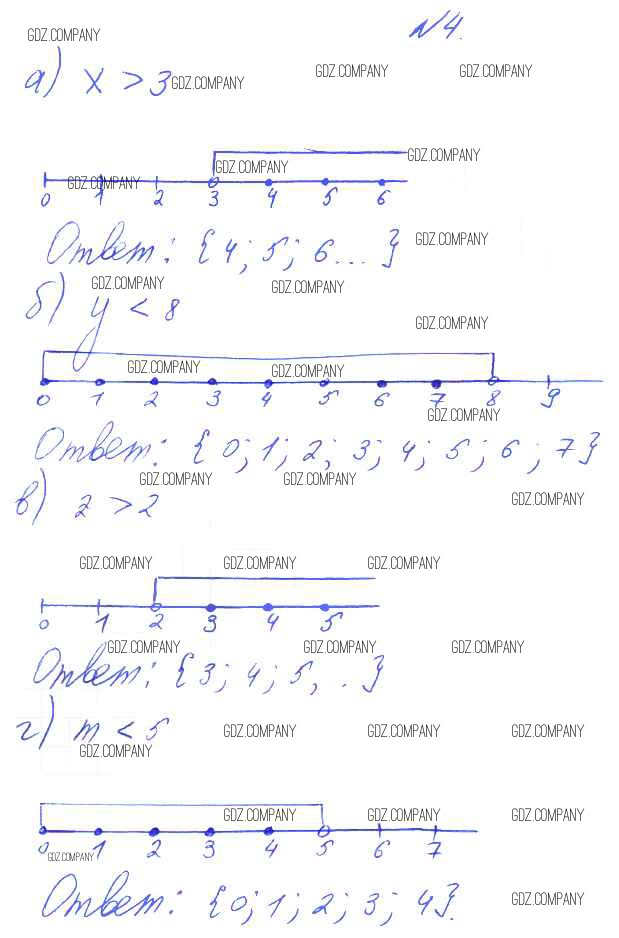 N4.
GDZ.COMPANY
GDZ.COMPANY GDZ.COMPANY
а) x > 3 GDZ.COMPANY
GDZ.COMPANY
GDZ.COMPANY
GDZ.COMPANY
0 1 2 3 4 5 6
Ответ: {4; 5; 6...} GDZ.COMPANY
GDZ.COMPANY GDZ.COMPANY
б) y < 8
GDZ.COMPANY
GDZ.COMPANY GDZ.COMPANY
0 1 2 3 4 5 6 7 8 9
GDZ.COMPANY
Ответ: {0; 1; 2; 3; 4; 5; 6; 7}
GDZ.COMPANY GDZ.COMPANY
в) z > 2 GDZ.COMPANY
GDZ.COMPANY GDZ.COMPANY GDZ.COMPANY
0 1 2 3 4 5
GDZ.COMPANY GDZ.COMPANY GDZ.COMPANY
Ответ: {3; 4; 5, ..}
г) m < 5 GDZ.COMPANY GDZ.COMPANY GDZ.COMPANY
GDZ.COMPANY
GDZ.COMPANY GDZ.COMPANY GDZ.COMPANY
0 1 2 3 4 5 6 7
GDZ.COMPANY
Ответ: {0; 1; 2; 3; 4}. GDZ.COMPANY